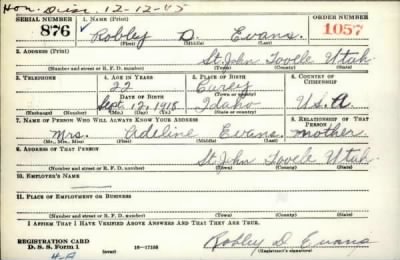 Hon. Disc. 12-12-45
SERIAL NUMBER 1. NAME (Print) ORDER NUMBER
876 Robley D. Evans. 1057
(First) (Middle) (Last)
2. ADDRESS (Print)
St. John Tooele Utah
(Number and street or R. F. D. number) (Town) (County) (State)
3. TELEPHONE 4. AGE IN YEARS 5. PLACE OF BIRTH 6. COUNTRY OF CITIZENSHIP
22
DATE OF BIRTH (Town or county)
Sept. 12, 1918 Idaho U.S.A.
(Exchange) (Number) (Mo.) (Day) (Yr.) (State or country)
7. NAME OF PERSON WHO WILL ALWAYS KNOW YOUR ADDRESS 8. RELATIONSHIP OF THAT PERSON
Mrs. Adeline Evans mother
(Mr., Mrs., Miss) (First) (Middle) (Last)
9. ADDRESS OF THAT PERSON
St. John Tooele Utah.
(Number and street or R. F. D. number) (Town) (County) (State)
10. EMPLOYER'S NAME
11. PLACE OF EMPLOYMENT OR BUSINESS
(Number and street or R. F. D. number) (Town) (County) (State)
I AFFIRM THAT I HAVE VERIFIED ABOVE ANSWERS AND THAT THEY ARE TRUE.
REGISTRATION CARD
D. S. S. Form 1 (over) 16-17105 Robley D Evans
(Registrant's signature)